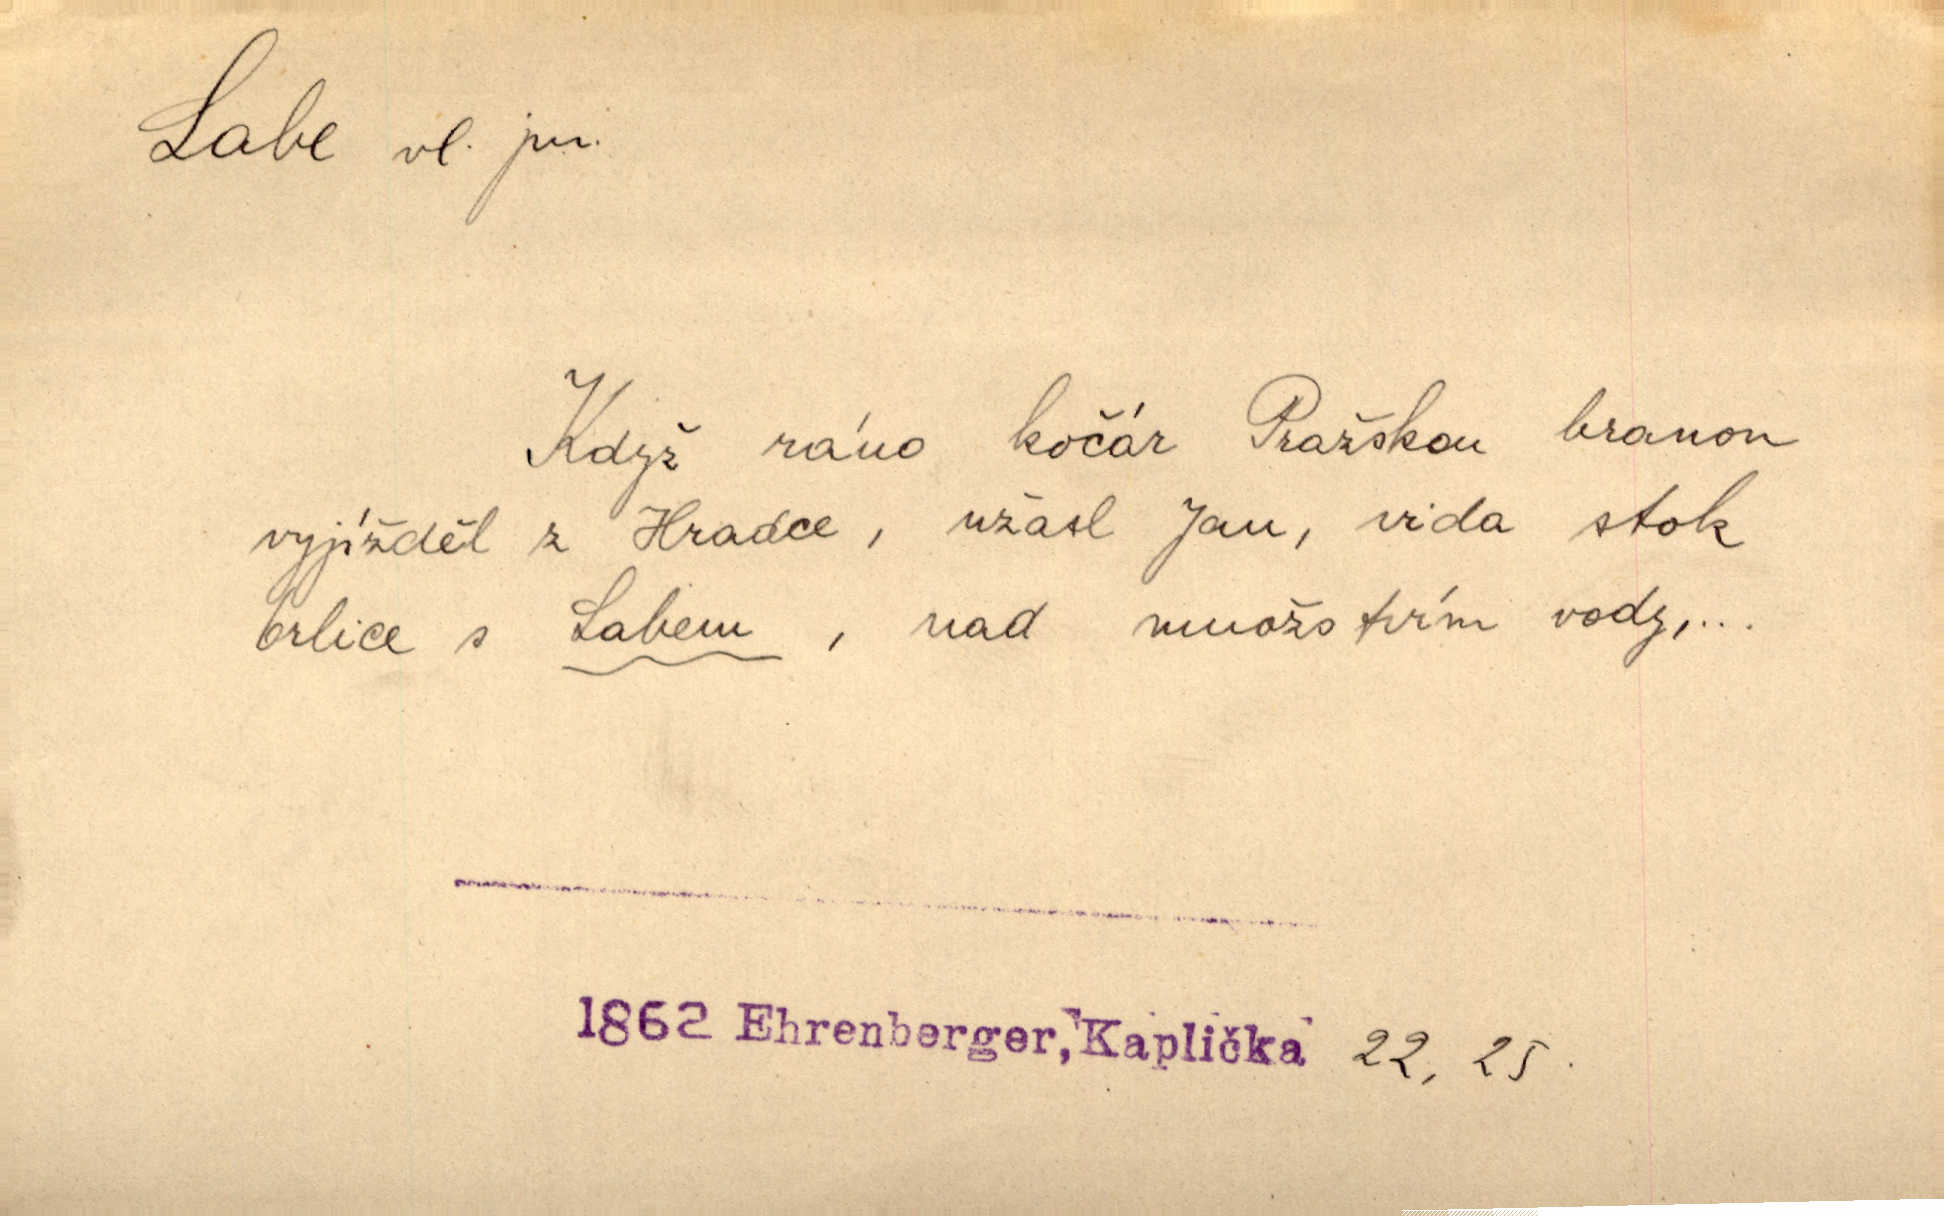 Labe vl. jm.
Když ráno kočár Pražskou branou
vyjížděl z Hradce, užasl Jan, vida stok
Orlice s Labem, nad množstvím vody,...
1862 Ehrenberger, Kaplička 22, 25.